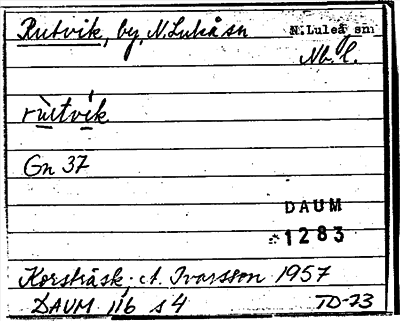 Rutvik, by, N. Luleå sn
N. Luleå sn
Nb. l.
rùtvìk
Gn 37
DAUM
1283
Korsträsk. A. Ivarsson 1957
DAUM 116 s 4
TD-73